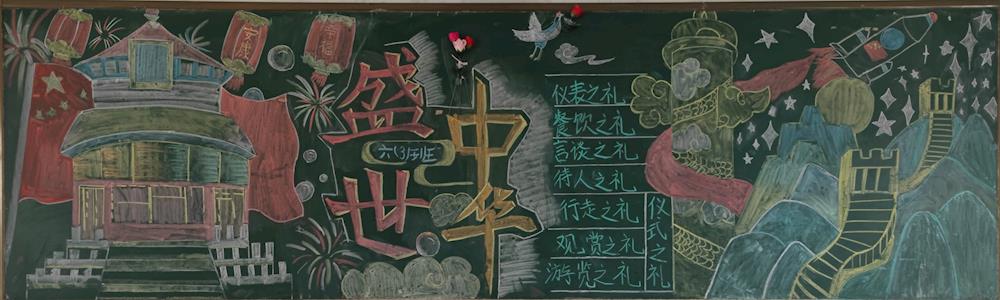 幸福
盛世
中华
六(3)班
仪表之礼
餐饮之礼
言谈之礼
待人之礼
行走之礼
观赏之礼
游览之礼
仪式之礼